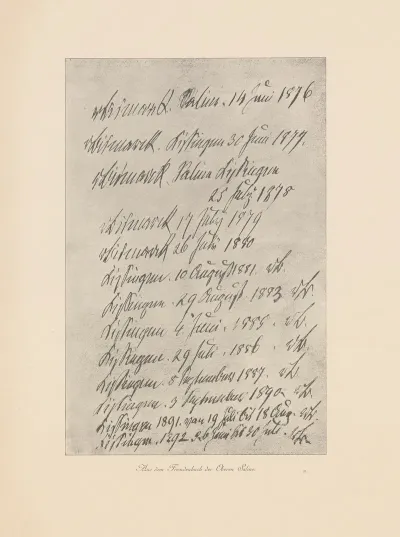 vBismarck. Saline. 14 Juni 1876
vBismarck. Kissingen 30 Juni 1877.
vBismarck. Saline Kissingen
25 July 1878
vBismarck 17 July 1879
vBismarck 26 Juli 1880
Kissingen. 10 August 1881. vB.
Kissingen. 29 August 1883 vB.
Kissingen 4 Juni. 1885. vB.
Kissingen. 29 Juli. 1886. vB.
Kissingen. 8 September 1887. vB
Kissingen. 3 September 1890 vB
Kissingen 1891. von 19 Juli bis 18 Aug. vB.
Kissingen. 1892 26 Juni bis 30 Juli. vB
Aus dem Fremdenbuch der Oberen Saline.